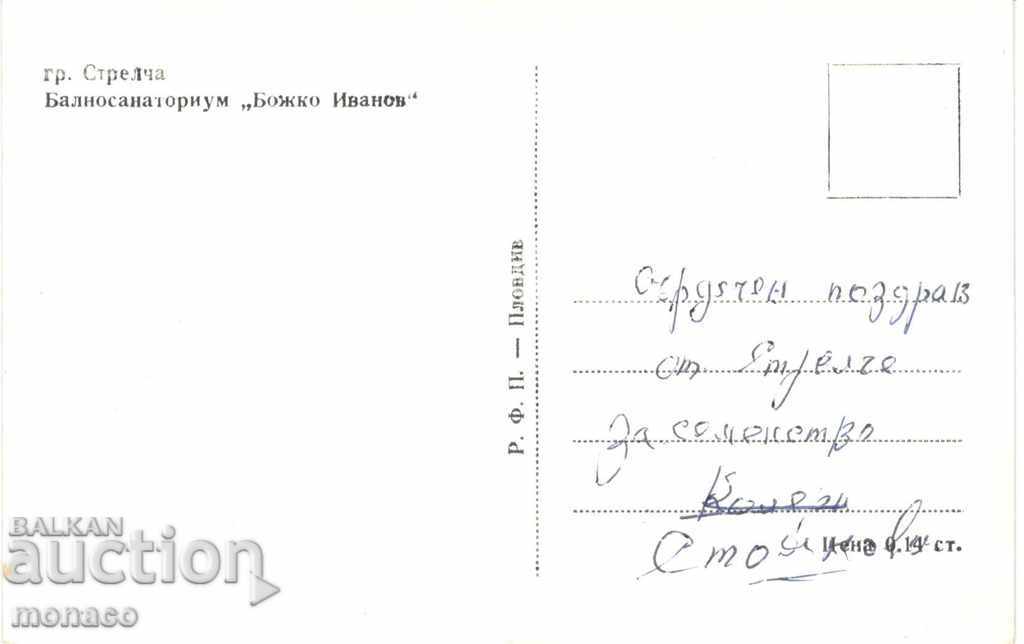 гр. Стрелча
Балносанаториум „Божко Иванов“
Р. Ф. П. — Пловдив
Сърдечен поздрав
от Стрелче
за семейство
Колеви
Стойкови
Цена 0.14 ст.
BALKAN
auction
monaco